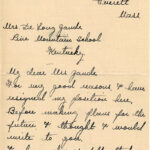 Everett
Mass
Mrs. De Long Zande
Pine Mountain School
Kentucky
My dear Mrs Zande
For my good reasons I have
resigned my position here,
Before making plans for the
future I thought I would
write to you.